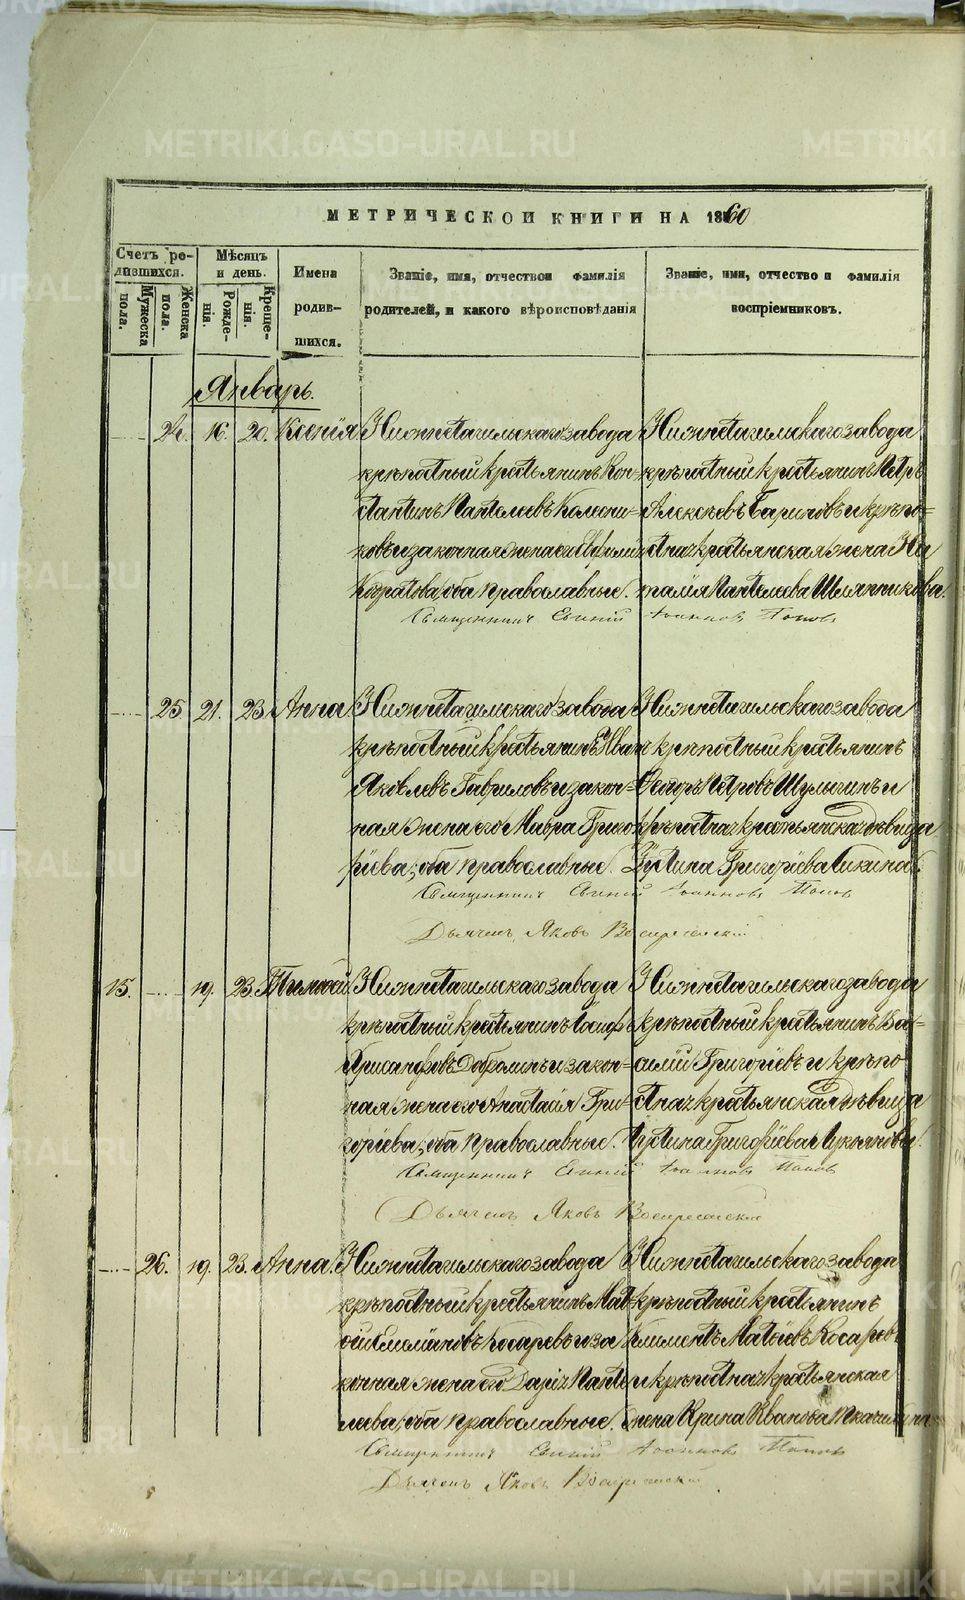 METRIKI.GASO-URAL.RU
МЕТРИЧЕСКОЙ КНИГИ НА 1860
Счетъ ро-
дившихся.
Мужеска
пола.
Женска
пола.
Мѣсяцъ
и день.
Рожде-
нія.
Креще-
нія.
Имена
родив-
шихся.
Званіе, имя, отчество и фамилія
родителей, и какого вѣроисповѣданія
Званіе, имя, отчество и фамилія
воспріемниковъ.
Январь.
24. 16. 20. Ксенія
Нижнетагильскаго завода
крѣпостный крестьянинъ Кон-
стантинъ Пантелеевъ Колесни-
ковъ и законная жена его
оба православные.
Нижнетагильскаго завода
крѣпостный крестьянинъ Петръ
Алексѣевъ Бариновъ и крѣпо-
стная крестьянская жена
Пантелеева Шляпникова.
Священникъ Іоанновъ Поповъ
25. 21. 23. Анна
Нижнетагильскаго завода
крѣпостный крестьянинъ Иванъ
Яковлевъ Гавриловъ и закон-
ная жена его Мавра Григо-
рiева, оба православные.
Нижнетагильскаго завода
крѣпостный крестьянинъ
Федоръ Петровъ Шулыгинъ и
крѣпостная крестьянская дѣвица
Устина Григорiева
Священникъ Іоанновъ Поповъ
Дьячекъ Яковъ Воскресенскій
15. 19. 23. Тимофей
Нижнетагильскаго завода
крѣпостный крестьянинъ Іосифъ
Хрисанфовъ и закон-
ная жена его Анастасія Гри-
горіева, оба православные.
Нижнетагильскаго завода
крѣпостный крестьянинъ Ва-
силій Григоріевъ и крѣпо
стная крестьянская дѣвица
Устина Григоріева
Священникъ Іоанновъ Поповъ
Дьячекъ Яковъ Воскресенскій
26. 19. 23. Анна.
Нижнетагильскаго завода
крѣпостный крестьянинъ Мат-
Косаревъ и за
конная жена его Дарія Панте
леева, оба православные.
Нижнетагильскаго завода
крѣпостный крестьянинъ
Климентъ Матвѣевъ Косаревъ
и крѣпостная крестьянская
жена Ирина Иванова
Священникъ Іоанновъ Поповъ
Дьячекъ Яковъ Воскресенскій
METRIKI.GASO-URAL.RU